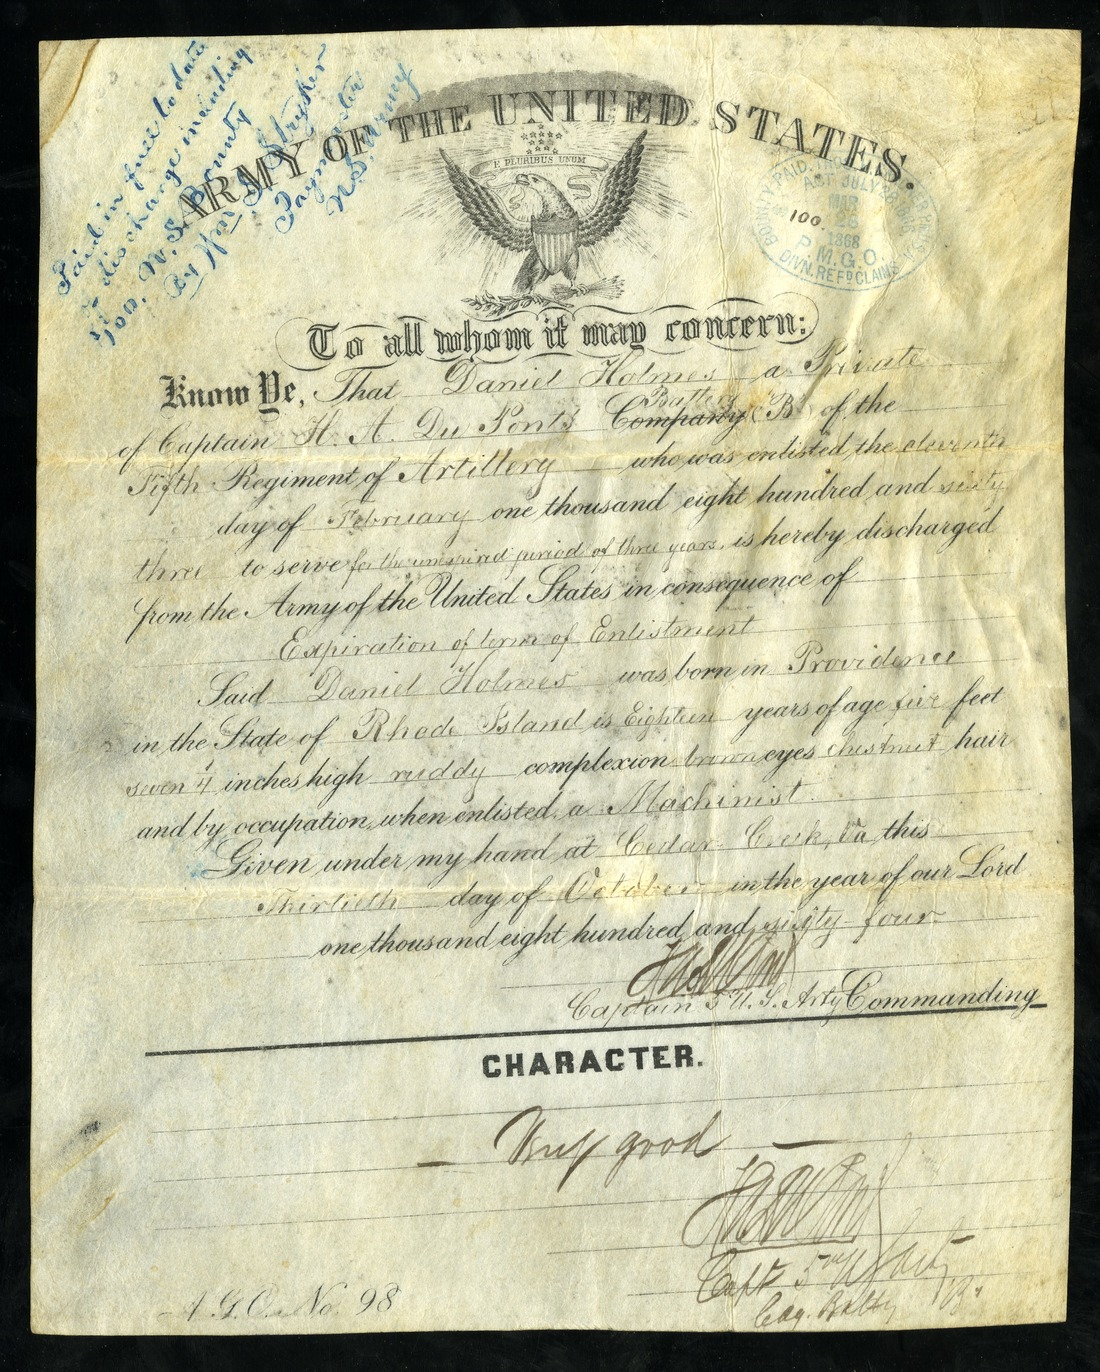 Paid in full to date
of discharge including
$100. U.S. Bounty
By Wm S. Stryker
Paymaster
U.S. Army
ARMY OF THE UNITED STATES.
E PLURIBUS UNUM
BOUNTY PAID.
ACT JULY 28, 1866
MAR
100.
26
1868
P.M.G.O.
DIVN. REFD CLAIMS
To all whom it may concern:
Know Ye, That Daniel Holmes a Private
Battery
of Captain H. A. Du Pont's Company (B) of the
Fifth Regiment of Artillery who was enlisted the eleventh
day of February one thousand eight hundred and sixty
three to serve for the unexpired period of three years, is hereby discharged
from the Army of the United States in consequence of
Expiration of term of Enlistment
Said Daniel Holmes was born in Providence
in the State of Rhode Island is Eighteen years of age five feet
seven 1/4 inches high ruddy complexion brown eyes chestnut hair
and by occupation, when enlisted, a Machinist.
Given under my hand at Cedar Creek, Va, this
Thirtieth day of October in the year of our Lord
one thousand eight hundred and sixty-four
Captain 5" U.S. Arty Commanding
CHARACTER.
— Very good —
Capt 5" U S Arty
Comg. Batty "B"
A.G.O. No. 98